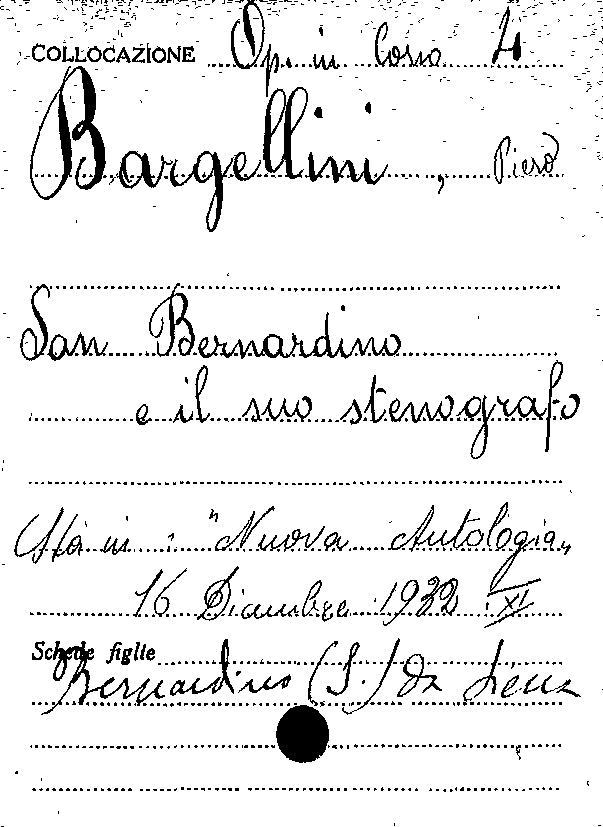 COLLOCAZIONE Op. in Corso 4
Bargellini, Piero
San Bernardino
e il suo stenografo
Sta in: "Nuova Antologia"
16 Dicembre 1932 XI
Schede figlie
Bernardino (S.) da Siena